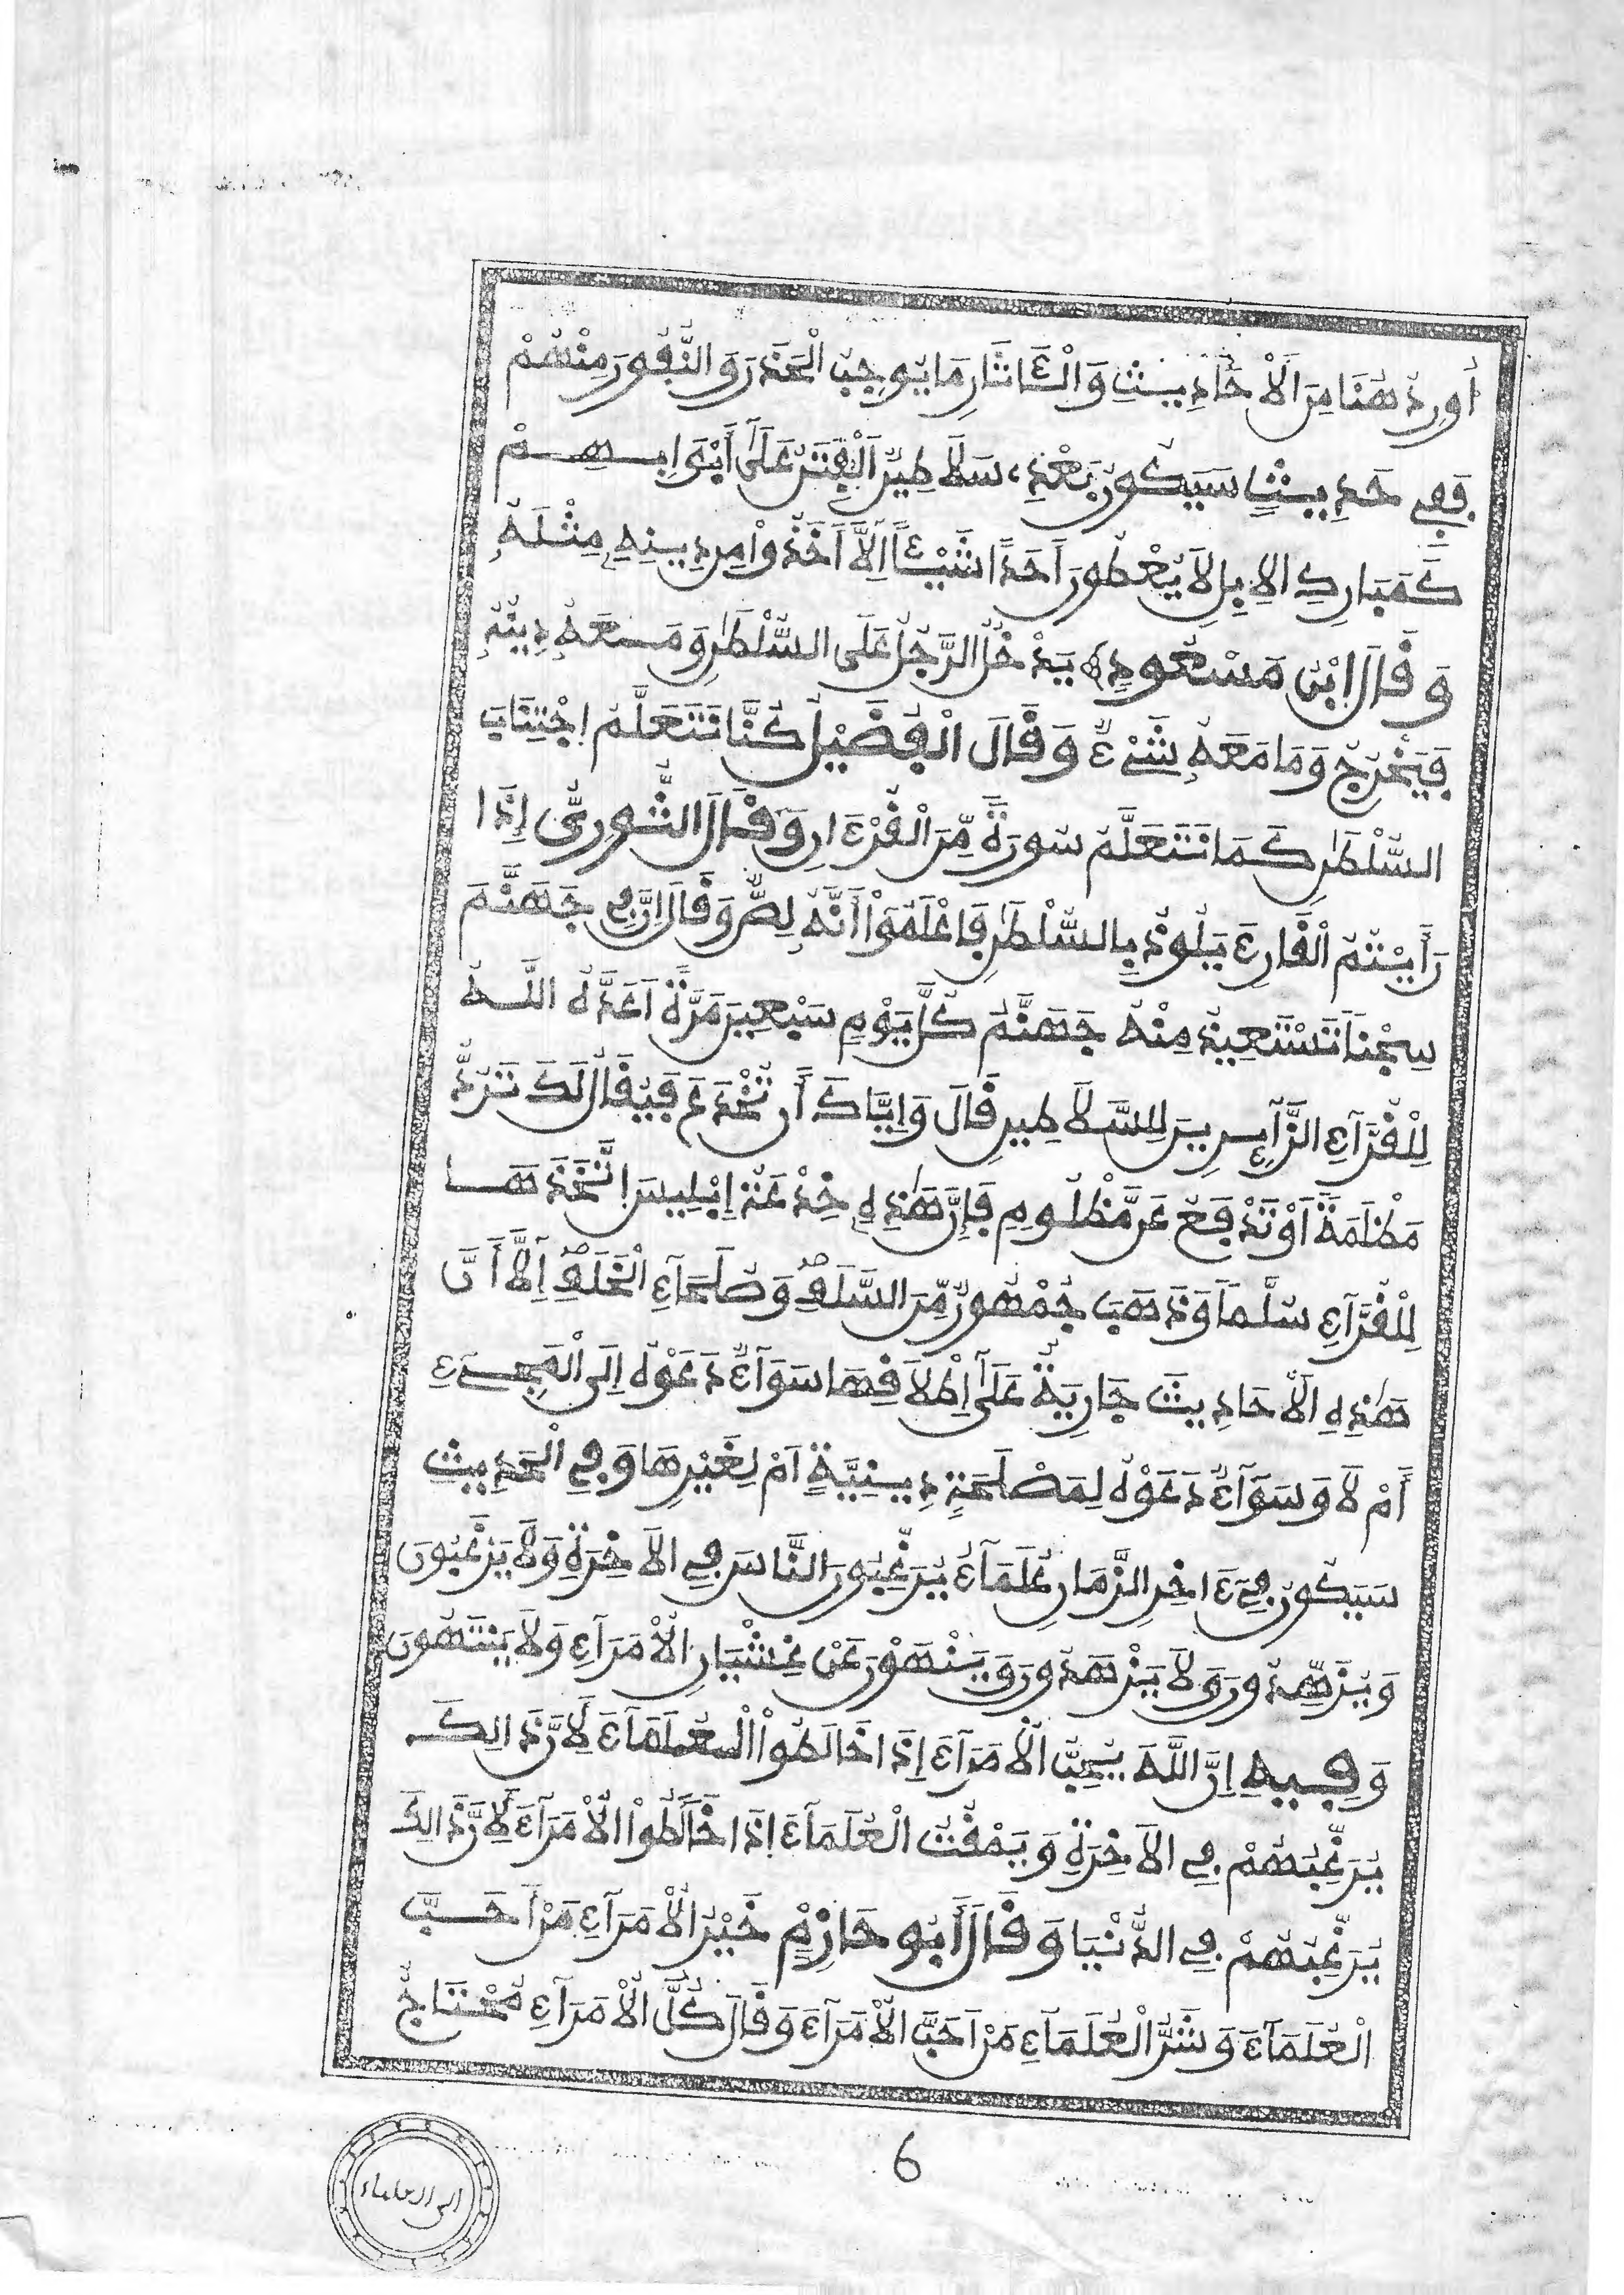 أُورِدُ هُنَا مِنَ الْأَحَادِيثِ وَالْءَاثَارِ مَا يُوجِبُ الْحَذَرَ وَالنُّفُورَ مِنْهُمْ
فَفِي حَدِيثٍ سَيَكُونُ بَعْدِي سَلَاطِينُ الْفِتَنُ عَلَى أَبْوَابِهِمْ
كَمَبَارِكِ الْإِبِلِ لَا يُعْطُونَ أَحَدًا شَيْئًا إِلَّا أَخَذُوا مِن دِينِهِ مِثْلَهُ
وَقَالَ ابْنُ مَسْعُودٍ يَدْخُلُ الرَّجُلُ عَلَى السُّلْطَٰنِ وَمَعَهُ دِينُهُ
فَيَخْرُجُ وَمَا مَعَهُ شَيْءٌ وَقَالَ الْفُضَيْلُ كُنَّا نَتَعَلَّمُ اجْتِنَابَ
السُّلْطَٰنِ كَمَا نَتَعَلَّمُ سُورَةً مِّنَ الْقُرْءَانِ وَقَالَ الثَّوْرِيُّ إِذَا
رَأَيْتُمُ الْقَارِئَ يَلُوذُ بِالسُّلْطَٰنِ فَاعْلَمُوا أَنَّهُ لِصٌّ وَقَالَ إِنَّ فِي جَهَنَّمَ
سِجْنًا تَسْتَعِيذُ مِنْهُ جَهَنَّمُ كُلَّ يَوْمٍ سَبْعِينَ مَرَّةً أَعَدَّهُ اللَّهُ
لِلْقُرَّآءِ الزَّآئِرِينَ لِلسَّلَاطِينِ قَالَ وَإِيَّاكَ أَن تُخْدَعَ فَيُقَالُ لَكَ تَرُدُّ
مَظْلَمَةً أَوْ تَدْفَعُ عَن مَّظْلُومٍ فَإِنَّ هَٰذِهِ خُدْعَةُ إِبْلِيسَ اتَّخَذَهَا
لِلْقُرَّآءِ سُلَّمًا وَذَهَبَ جُمْهُورٌ مِّنَ السَّلَفِ وَصُلَحَآءِ الْخَلَفِ إِلَى أَنَّ
هَٰذِهِ الْأَحَادِيثَ جَارِيَةٌ عَلَى إِطْلَاقِهَا سَوَآءٌ دَعَوْهُ إِلَى الْمَجِيءِ
أَمْ لَا وَسَوَآءٌ دَعَوْهُ لِمَصْلَحَةٍ دِينِيَّةٍ أَمْ لِغَيْرِهَا وَفِي الْحَدِيثِ
سَيَكُونُ فِي ءَاخِرِ الزَّمَانِ عُلَمَآءُ يُرَغِّبُونَ النَّاسَ فِي الْآخِرَةِ وَلَا يَرْغَبُونَ
وَيُزَهِّدُونَ وَلَا يَزْهَدُونَ وَيَنْهَوْنَ عَنْ غِشْيَانِ الْأُمَرَآءِ وَلَا يَنْتَهُونَ
وَفِيهِ إِنَّ اللَّهَ يُحِبُّ الْأُمَرَآءَ إِذَا خَالَطُوا الْعُلَمَآءَ لِأَنَّ ذَالِكَ
يُرَغِّبُهُمْ فِي الْآخِرَةِ وَيَمْقُتُ الْعُلَمَآءَ إِذَا خَالَطُوا الْأُمَرَآءَ لِأَنَّ ذَالِكَ
يُرَغِّبُهُمْ فِي الدُّنْيَا وَقَالَ أَبُو حَازِمٍ خَيْرُ الْأُمَرَآءِ مَنْ أَحَبَّ
الْعُلَمَآءَ وَشَرُّ الْعُلَمَآءِ مَنْ أَحَبَّ الْأُمَرَآءَ وَقَالَ كُلُّ الْأُمَرَآءِ مُحْتَاجٌ
6
إلى العلماء